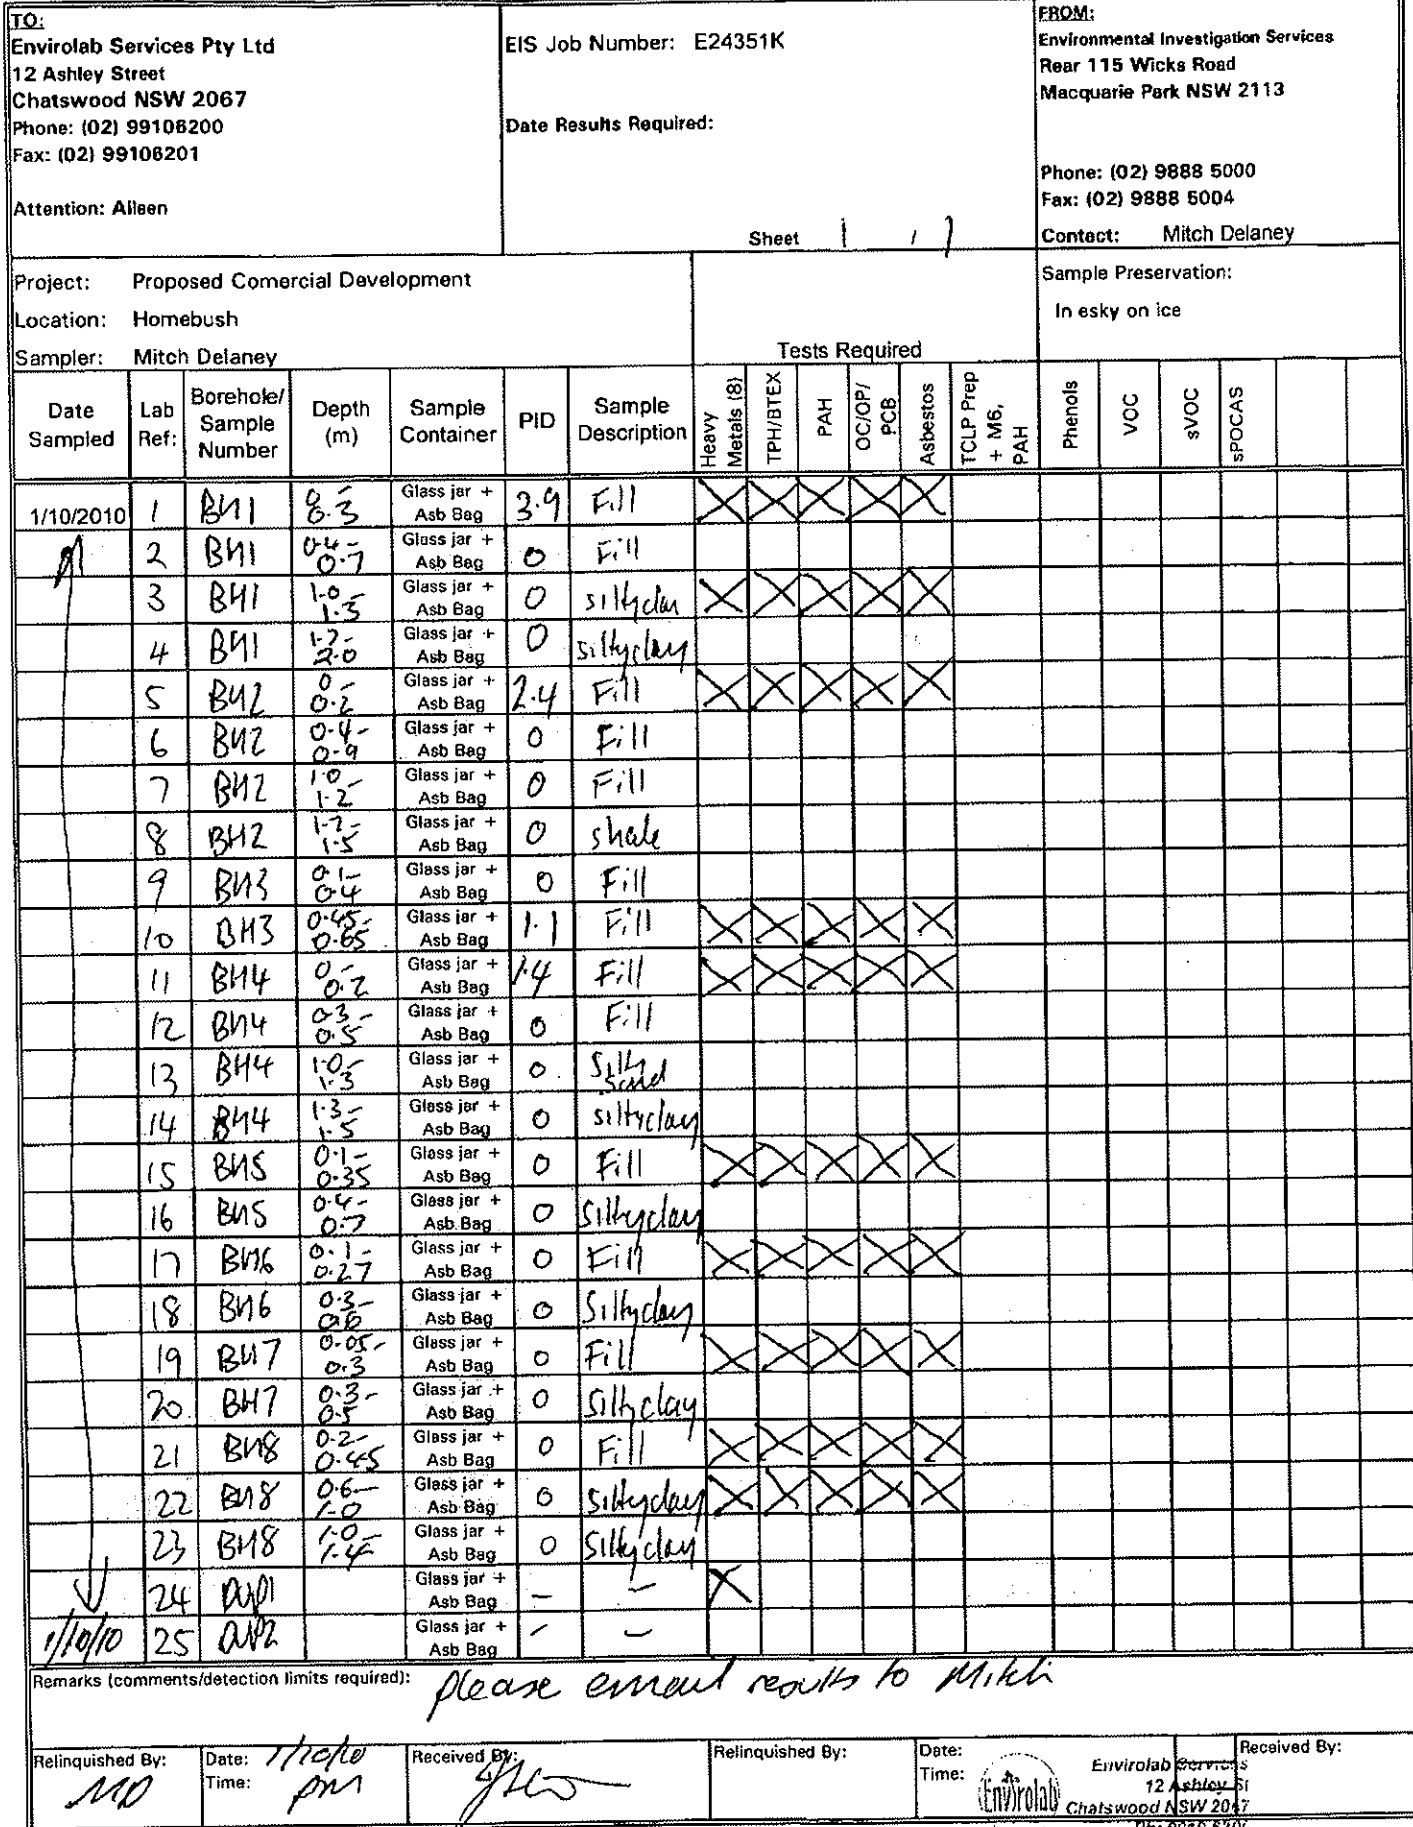 TO:
Envirolab Services Pty Ltd
12 Ashley Street
Chatswood NSW 2067
Phone: (02) 99106200
Fax: (02) 99106201
Attention: Aileen
EIS Job Number: E24351K
Date Results Required:
Sheet 1 / 1
FROM:
Environmental Investigation Services
Rear 115 Wicks Road
Macquarie Park NSW 2113
Phone: (02) 9888 5000
Fax: (02) 9888 5004
Contact: Mitch Delaney
Project: Proposed Comercial Development
Location: Homebush
Sampler: Mitch Delaney
Tests Required
Sample Preservation:
In esky on ice
Date Sampled | Lab Ref: | Borehole/ Sample Number | Depth (m) | Sample Container | PID | Sample Description | Heavy Metals (8) | TPH/BTEX | PAH | OC/OP/ PCB | Asbestos | TCLP Prep + M6, PAH | Phenols | VOC | sVOC | sPOCAS
1/10/2010 1 BH1 0-0.3 Glass jar + Asb Bag 3.9 Fill X X X X X
2 BH1 0.4-0.7 Glass jar + Asb Bag 0 Fill
3 BH1 1.0-1.3 Glass jar + Asb Bag 0 silty clay X X X X X
4 BH1 1.7-2.0 Glass jar + Asb Bag 0 silty clay
5 BH2 0-0.2 Glass jar + Asb Bag 2.4 Fill X X X X X
6 BH2 0.4-0.9 Glass jar + Asb Bag 0 Fill
7 BH2 1.0-1.2 Glass jar + Asb Bag 0 Fill
8 BH2 Glass jar + Asb Bag 0 shale
9 BH3 0.1-0.4 Glass jar + Asb Bag 0 Fill
10 BH3 0.45-0.65 Glass jar + Asb Bag 1.1 Fill X X X X X
11 BH4 0-0.2 Glass jar + Asb Bag 1.4 Fill X X X X X
12 BH4 0.3-0.5 Glass jar + Asb Bag 0 Fill
13 BH4 1.0-1.3 Glass jar + Asb Bag 0 Silty Sand
14 BH4 1.3-1.5 Glass jar + Asb Bag 0 silty clay
15 BH5 0.1-0.35 Glass jar + Asb Bag 0 Fill X X X X X
16 BH5 0.4-0.7 Glass jar + Asb Bag 0 Silty clay
17 BH6 0.1-0.27 Glass jar + Asb Bag 0 Fill X X X X X
18 BH6 0.3-0.6 Glass jar + Asb Bag 0 Silty clay
19 BH7 0.05-0.3 Glass jar + Asb Bag 0 Fill X X X X X
20 BH7 0.3-0.5 Glass jar + Asb Bag 0 Silty clay
21 BH8 0.2-0.45 Glass jar + Asb Bag 0 Fill X X X X X
22 BH8 0.6-1.0 Glass jar + Asb Bag 0 Silty clay X X X X X
23 BH8 1.0-1.4 Glass jar + Asb Bag 0 Silty clay
24 DUP1 Glass jar + Asb Bag - - X
1/10/10 25 DUP2 Glass jar + Asb Bag - -
Remarks (comments/detection limits required): please email results to Mitch
Relinquished By: MD
Date: 1/10/10
Time: pm
Received By:
Relinquished By:
Date:
Time:
Envirolab
Envirolab Services
12 Ashley St
Chatswood NSW 2067
Received By: